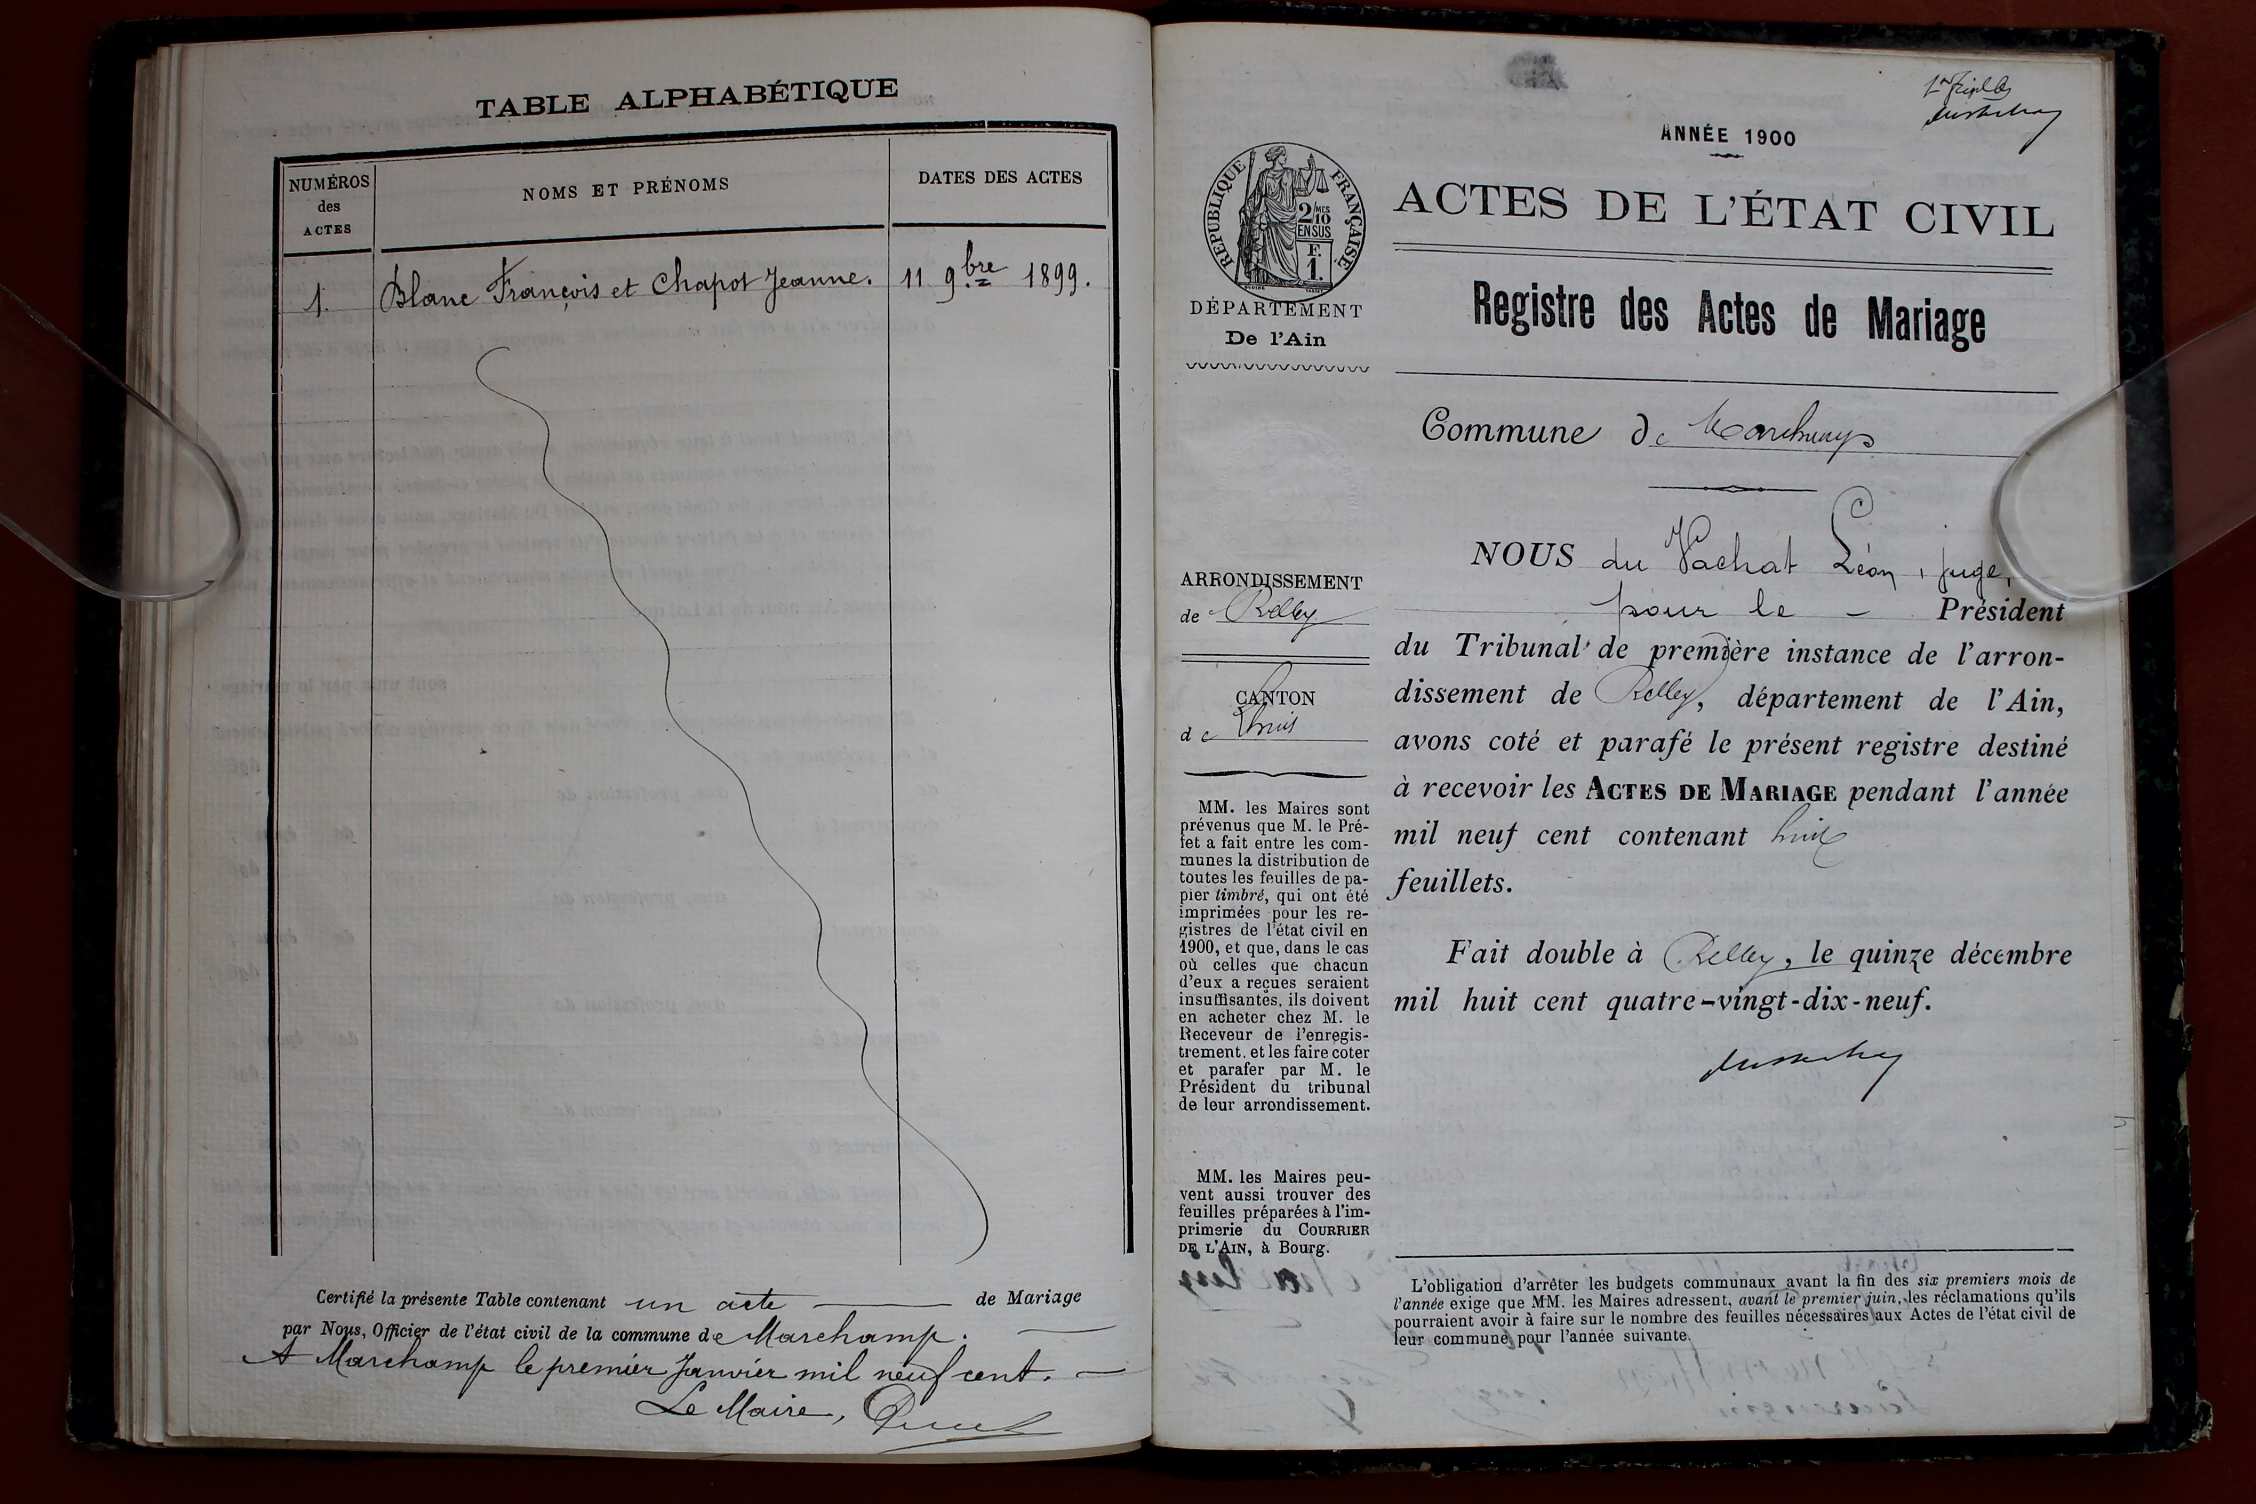 TABLE ALPHABÉTIQUE
NUMÉROS
des
ACTES
NOMS ET PRÉNOMS
DATES DES ACTES
1.
Blanc François et Chapot Jeanne.
11 9.bre 1899.
Certifié la présente Table contenant un acte de Mariage
par Nous, Officier de l'état civil de la commune de Marchamp.
A Marchamp le premier Janvier mil neuf cent.
Le Maire,
ANNÉE 1900
RÉPUBLIQUE FRANÇAISE
2 MES
10
EN SUS
F.
1.
DÉPARTEMENT
De l'Ain
ARRONDISSEMENT
de Belley
CANTON
de Lhuis
MM. les Maires sont
prévenus que M. le Pré-
fet a fait entre les com-
munes la distribution de
toutes les feuilles de pa-
pier timbré, qui ont été
imprimées pour les re-
gistres de l'état civil en
1900, et que, dans le cas
où celles que chacun
d'eux a reçues seraient
insuffisantes, ils doivent
en acheter chez M. le
Receveur de l'enregis-
trement. et les faire coter
et parafer par M. le
Président du tribunal
de leur arrondissement.
MM. les Maires peu-
vent aussi trouver des
feuilles préparées à l'im-
primerie du COURRIER
DE L'AIN, à Bourg.
ACTES DE L'ÉTAT CIVIL
Registre des Actes de Mariage
Commune de Marchamp
NOUS du Vachat Léon, juge,
pour le - Président
du Tribunal de première instance de l'arron-
dissement de Belley, département de l'Ain,
avons coté et parafé le présent registre destiné
à recevoir les ACTES DE MARIAGE pendant l'année
mil neuf cent contenant huit
feuillets.
Fait double à Belley, le quinze décembre
mil huit cent quatre-vingt-dix-neuf.
L'obligation d'arrêter les budgets communaux avant la fin des six premiers mois de
l'année exige que MM. les Maires adressent, avant le premier juin, les réclamations qu'ils
pourraient avoir à faire sur le nombre des feuilles nécessaires aux Actes de l'état civil de
leur commune pour l'année suivante.